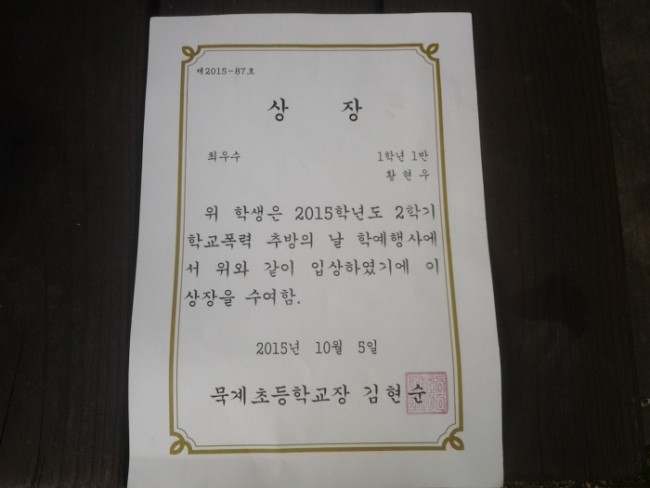 제2015-87호
상 장
최우수 1학년 1반
황현우
위 학생은 2015학년도 2학기
학교폭력 추방의 날 학예행사에
서 위와 같이 입상하였기에 이
상장을 수여함.
2015년 10월 5일
묵계초등학교장 김현순